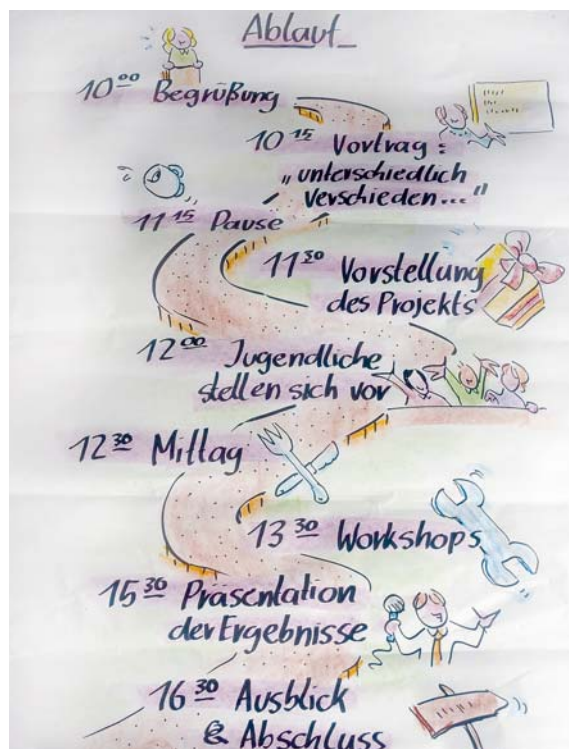 Ablauf
10 00 Begrüßung
10 15 Vortrag:
„unterschiedlich
verschieden..."
11 15 Pause
11 30 Vorstellung
des Projekts
12 00 Jugendliche
stellen sich vor
12 30 Mittag
13 30 Workshops
15 30 Präsentation
der Ergebnisse
16 30 Ausblick
& Abschluss